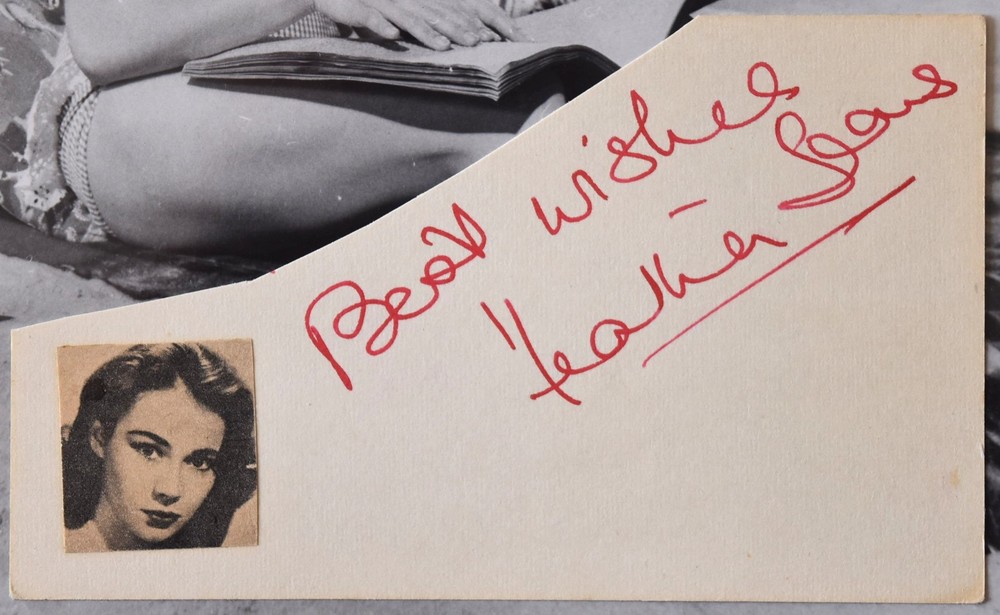 Best wishes
Heather Sears